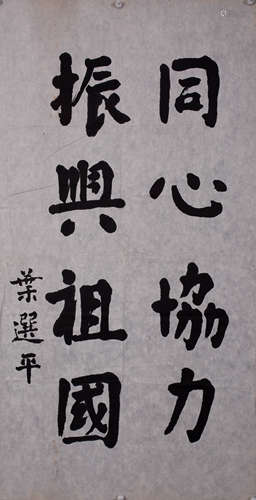 同心協力
振興祖國
葉選平